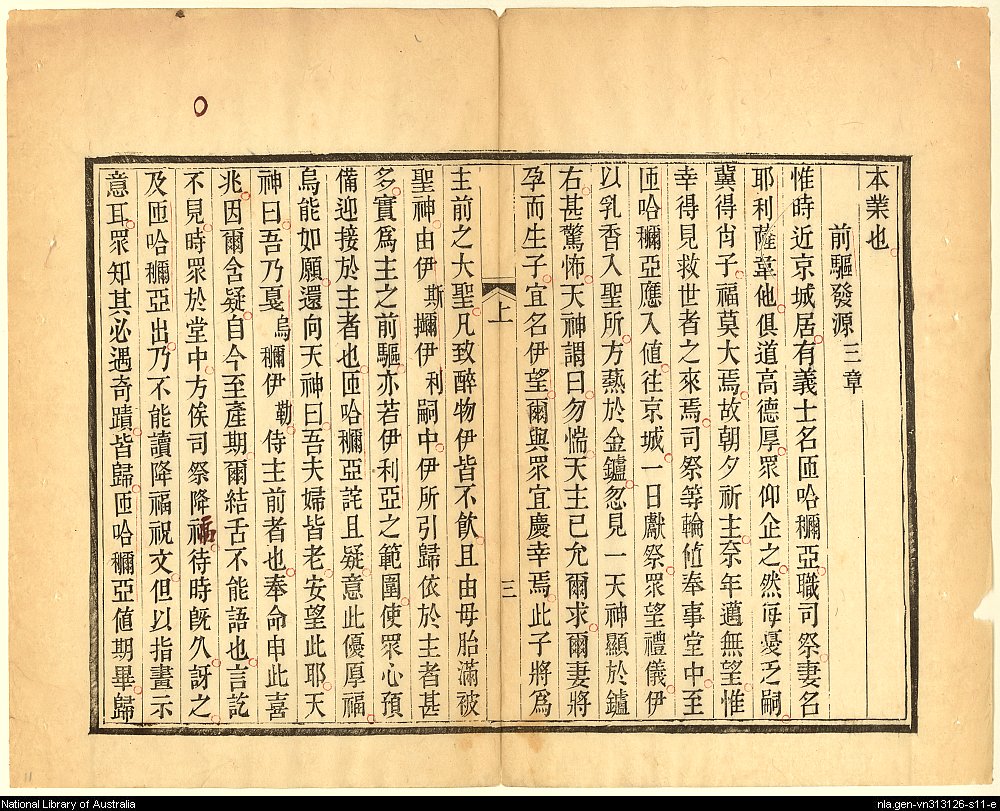 本業也
前驅發源三章
惟時近京城居有義士名匝哈穪亞職司祭妻名
耶利薩韋他俱道高德厚眾仰企之然每憂乏嗣
冀得肖子福莫大焉故朝夕祈主奈年邁無望惟
幸得見救世者之來焉司祭等輪值奉事堂中至
匝哈穪亞應入值往京城一日獻祭眾望禮儀伊
以乳香入聖所方爇於金鑪忽見一天神顯於鑪
右甚驚怖天神謂曰勿惴天主已允爾求爾妻將
孕而生子宜名伊望爾與眾宜慶幸焉此子將為
上
三
主前之大聖凡致醉物伊皆不飲且由母胎滿被
聖神由伊斯擟伊利嗣中伊所引歸依於主者甚
多實為主之前驅亦若伊利亞之範圍使眾心預
備迎接於主者也匝哈穪亞詫且疑意此優厚福
烏能如願還向天神曰吾夫婦皆老安望此耶天
神曰吾乃戛烏穪伊勒侍主前者也奉命申此喜
兆因爾含疑自今至產期爾結舌不能語也言訖
不見時眾於堂中方俟司祭降福待時旣久訝之
及匝哈穪亞出乃不能讀降福祝文但以指畫示
意耳眾知其必遇奇蹟皆歸匝哈穪亞值期畢歸
National Library of Australia
nla.gen-vn313126-s11-e